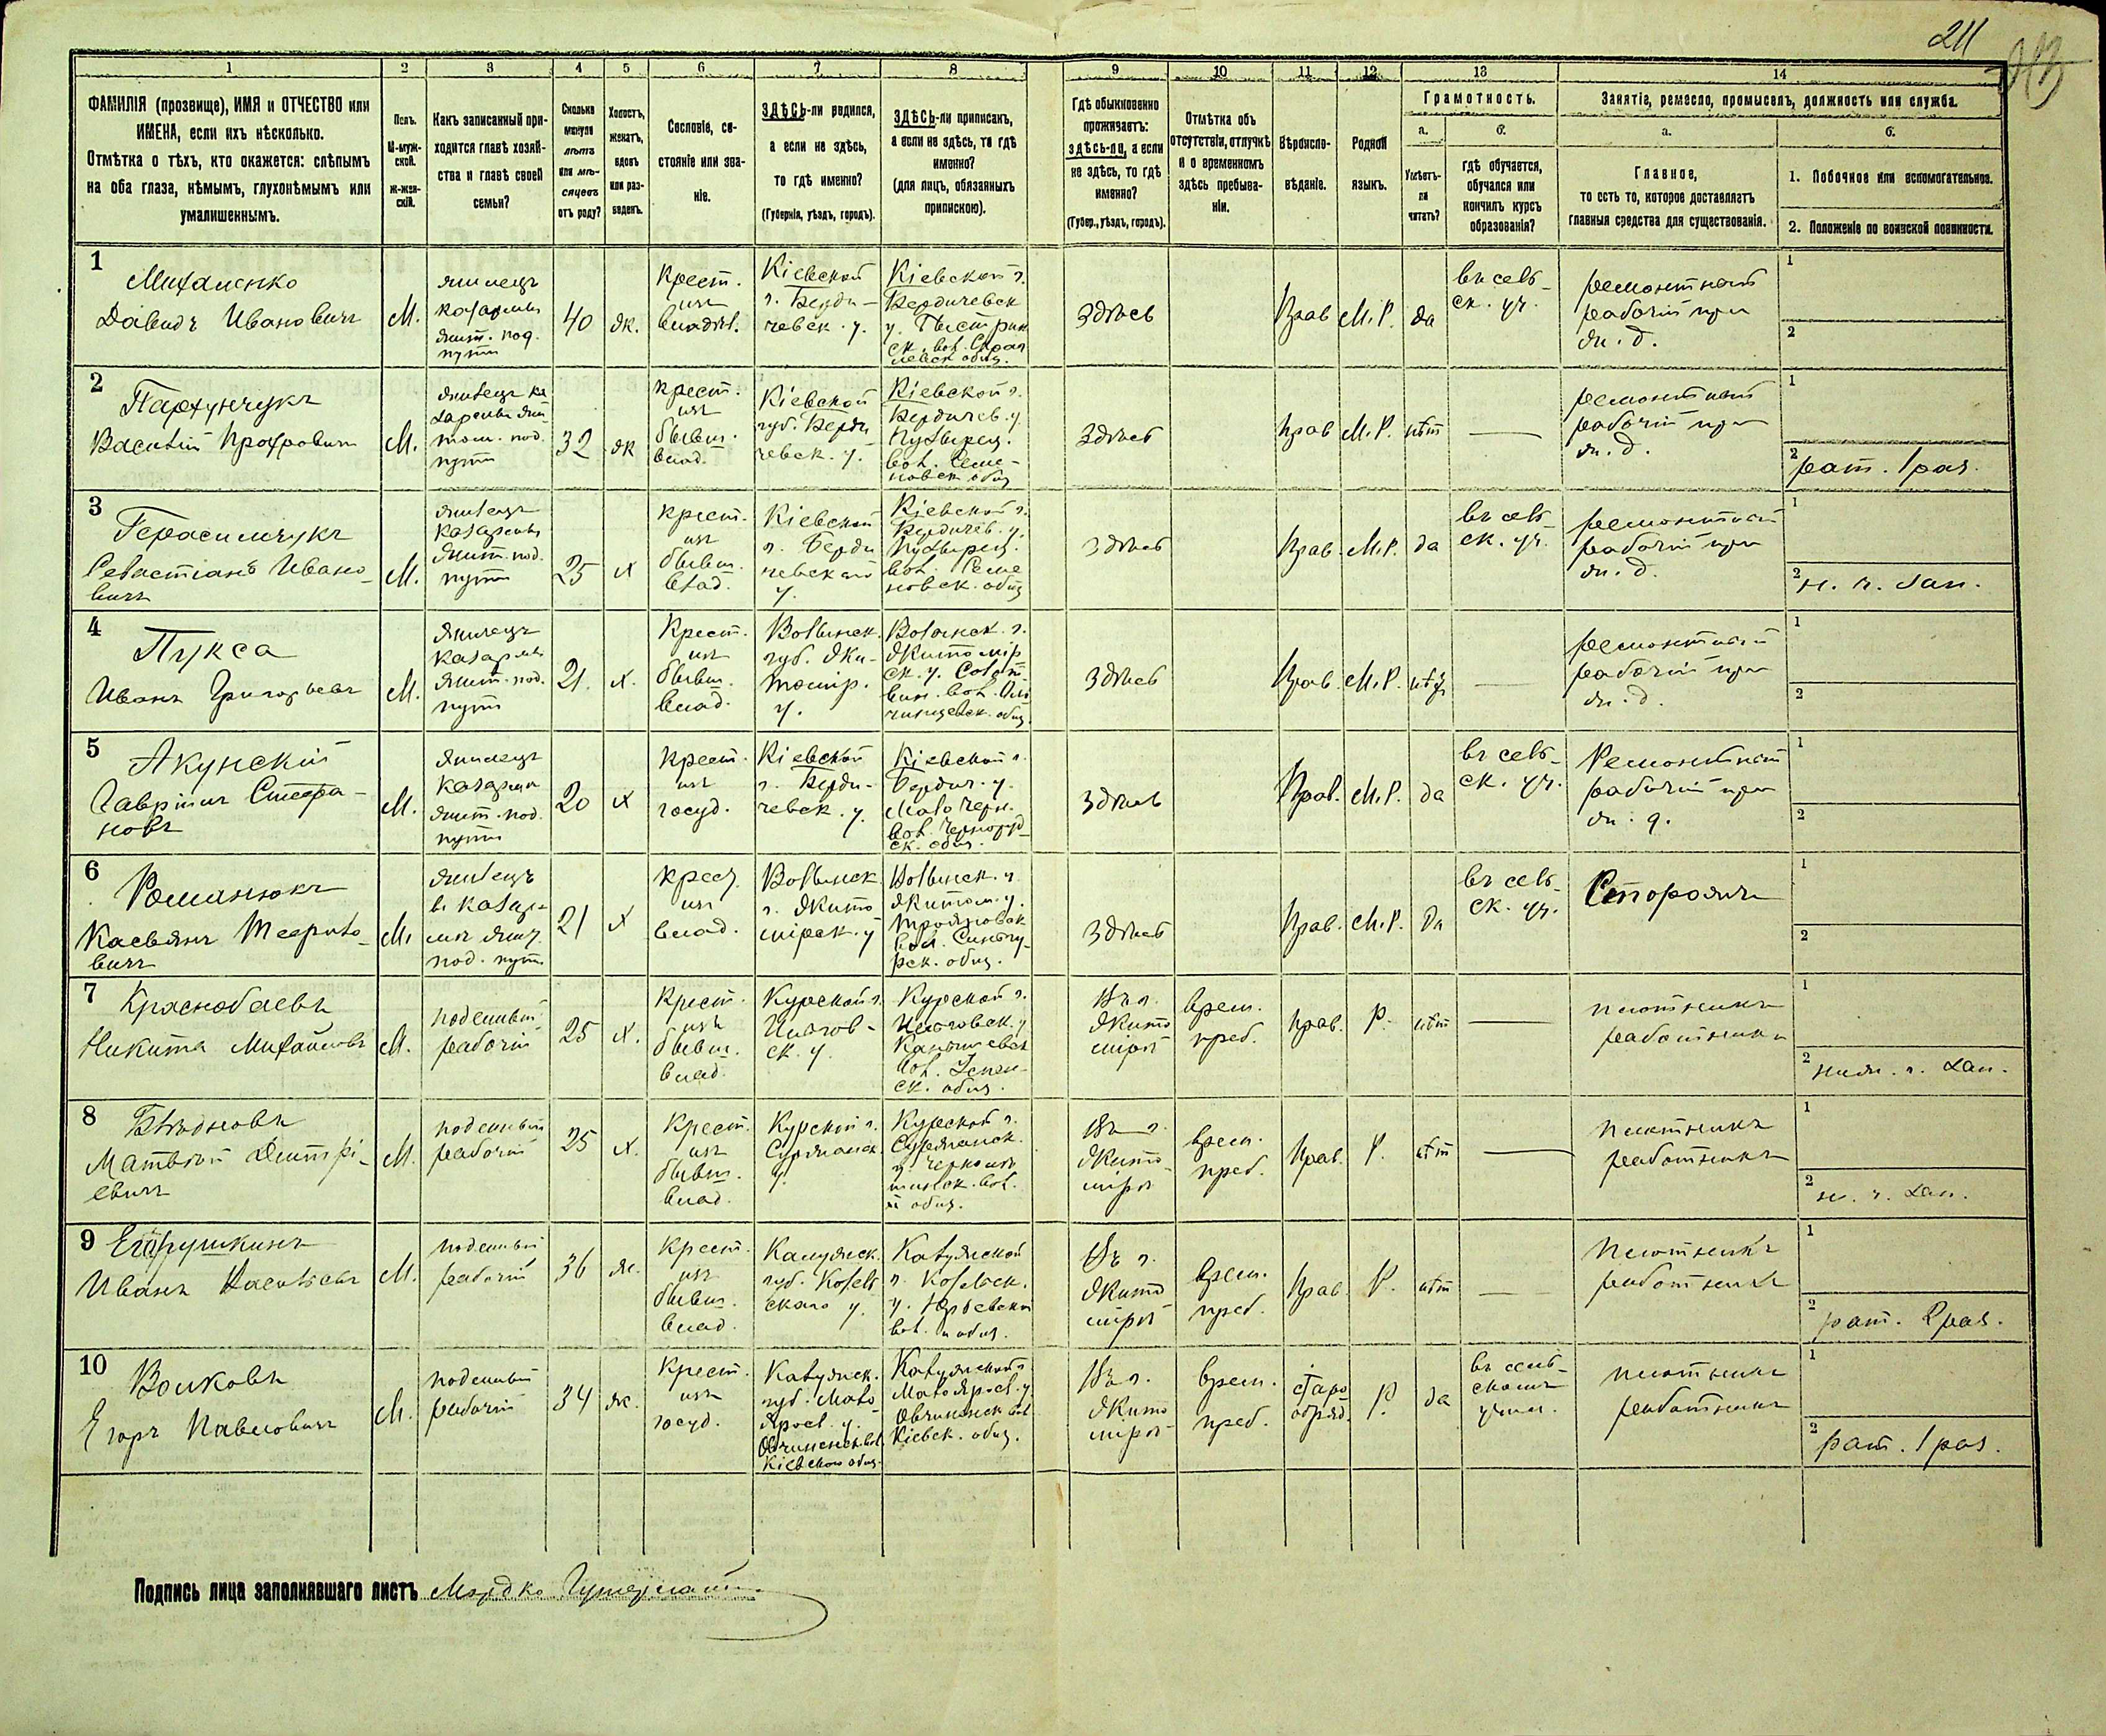 211
1 2 3 4 5 6 7 8 9 10 11 12 13 14
ФАМИЛІЯ (прозвище), ИМЯ и ОТЧЕСТВО или
ИМЕНА, если ихъ нѣсколько.
Отмѣтка о тѣхъ, кто окажется: слѣпымъ
на оба глаза, нѣмымъ, глухонѣмымъ или
умалишеннымъ.
Полъ.
М-муж-
ской.
Ж-жен-
скій.
Какъ записанный при-
ходится главѣ хозяй-
ства и главѣ своей
семьи?
Сколько
минуло
лѣтъ
или мѣ-
сяцевъ
отъ роду?
Холостъ,
женатъ,
вдовъ
или раз-
веденъ.
Сословіе, со-
стояніе или зва-
ніе.
ЗДѢСЬ-ли родился,
а если не здѣсь,
то гдѣ именно?
(Губернія, уѣздъ, городъ).
ЗДѢСЬ-ли приписанъ,
а если не здѣсь, то гдѣ
именно?
(для лицъ, обязанныхъ
припискою).
Гдѣ обыкновенно
проживаетъ:
здѣсь-ли, а если
не здѣсь, то гдѣ
именно?
(Губер., уѣздъ, городъ).
Отмѣтка объ
отсутствіи, отлучкѣ
и о временномъ
здѣсь пребыва-
ніи.
Вѣроиспо-
вѣданіе.
Родной
языкъ.
Грамотность.
а.
Умѣетъ-
ли
читать?
б.
гдѣ обучается,
обучался или
кончилъ курсъ
образованія?
Занятіе, ремесло, промыселъ, должность или служба.
а.
Главное,
то есть то, которое доставляетъ
главныя средства для существованія.
б.
1. Побочное или вспомогательное.
2. Положеніе по воинской повинности.
1
Михаленко
Давидъ Ивановичъ
М.
жилецъ
казармы
жит. под.
пути
40
ж.
Крест.
изъ
владѣл.
Кіевской
г. Берди-
чевск. у.
Кіевской г.
Бердичевск
у.
ск. вол.
общ.
здѣсь
Прав
М.Р.
да
въ сель-
ск. уч.
ремонтный
рабочій при
ж. д.
1
2
2
Пархунчукъ
Василій
М.
жилецъ ка
зармы жи
том. под.
пути
32
ж
крест.
изъ
бывш.
влад.
Кіевской
губ. Берди
чевск. у.
Кіевской г.
Бердичев. у
Пузырец.
вол. Семе-
новск общ
здѣсь
прав
М.Р.
нѣт
—
ремонтный
рабочій при
ж. д.
1
2
рат. 1 раз.
3
Герасимчукъ
Севастіанъ Ивано-
вичъ
М.
жилецъ
казармы
жит. под.
пути
25
х
крест.
изъ
бывш.
влад.
Кіевской
г. Берди
чевской
у.
Кіевской г.
Бердичев. у.
Пузырец.
вол. Семе
новск. общ
здѣсь
Прав.
М.Р.
да
въ сель-
ск. уч.
ремонтный
рабочій при
ж. д.
1
2
н. ч. зап.
4
Пукса
Иванъ Григорьевъ
М.
жилецъ
казармы
жит. под.
пути
21.
х.
Крест.
изъ
бывш.
влад.
Волынск.
губ. Жи-
томір.
у.
Волынск. г.
Житомір
ск. у.
вин. вол.
общ.
здѣсь
Прав.
М.Р.
нѣт
—
ремонтный
рабочій при
ж. д.
1
2
5
Акунскій
Гавріилъ Стефа-
новъ
М.
жилецъ
казармы
жит. под.
пути
20
х
крест.
изъ
госуд.
Кіевской
г. Берди-
чевск. у.
Кіевской г.
Бердич. у.
Мало Черн.
вол. Чернoруд-
ск. общ.
здѣсь
Прав.
М.Р.
да
въ сель-
ск. уч.
Ремонтный
рабочій при
ж. д.
1
2
6
Романюкъ
Касьянъ Теофило-
вичъ
М.
жилецъ
въ казар-
мѣ жит.
под. пути
21
х
крест.
изъ
влад.
Волынск
г. Жито
мірск. у
Волынск. г
Житом. у.
Трояновск
вол. Сингу-
рск. общ.
здѣсь
Прав.
М.Р.
да
въ сель-
ск. уч.
Сторожъ
1
2
7
Краснобаевъ
Никита Михайловъ
М.
поденный
рабочій
25
х.
Крест.
изъ
бывш.
влад.
Курской г.
Льгов-
ск. у.
Курской г.
Льговск. у
вол.
ск. общ.
Въ г.
Жито
мірѣ
врем.
преб.
прав.
Р.
нѣт
—
плотникъ
работникъ
1
2
ниж. ч. зап.
8
Бѣдновъ
Матвѣй Дмитрі-
евичъ
М.
поденный
рабочій
25
х.
Крест.
изъ
бывш.
влад.
Курской г.
Суджанск
у.
Курской г.
Суджанск.
у.
вол.
и общ.
Въ г.
Жито
мірѣ
врем.
преб.
Прав.
Р.
нѣт
—
плотникъ
работникъ
1
2
н. ч. зап.
9
Егорушкинъ
Иванъ
М.
поденный
рабочій
36
ж.
Крест.
изъ
бывш.
влад.
Калужск.
губ. Козель
скаго у.
Калужской
г. Козельск.
у. Юрьевской
вол. и общ.
Въ г.
Жито
мірѣ
врем.
преб.
Прав.
Р.
нѣт
—
плотникъ
работникъ
1
2
рат. 2 раз.
10
Волковъ
Егоръ Павловичъ
М.
поденный
рабочій
34
ж.
Крест.
изъ
госуд.
Калужск.
губ. Мало
Яросл. у.
Овчининск. вол.
Кіевскаго общ.
Калужской г
Мало Яросл. у
Овчининск вол
Кіевск. общ.
Въ г.
Жито
мірѣ
врем.
преб.
старо
обряд.
Р.
да
въ сель-
скомъ
учил.
плотникъ
работникъ
1
2
рат. 1 раз.
Подпись лица заполнявшаго листъ Мордко